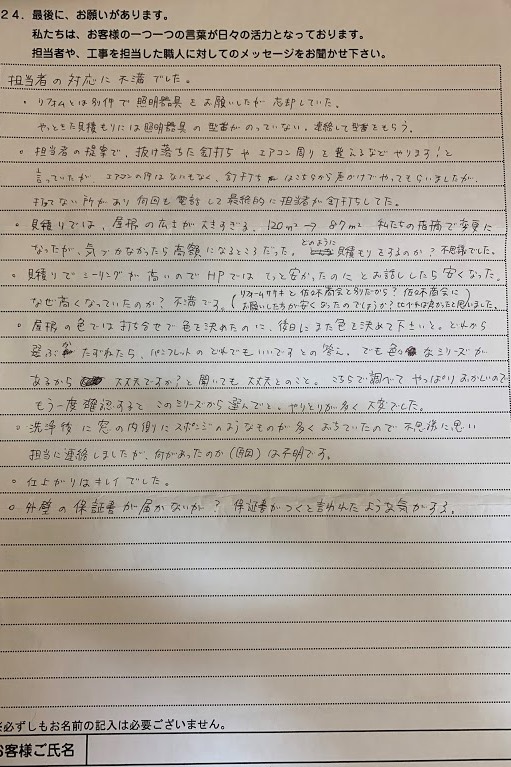 24. 最後に、お願いがあります。
私たちは、お客様の一つ一つの言葉が日々の活力となっております。
担当者や、工事を担当した職人に対してのメッセージをお聞かせ下さい。
担当者の対応に不満でした。
・リフォムとは別件で照明器具をお願いしたが忘却していた。
やっときた見積もりには照明器具の型番がのっていない。連絡して型番をもらう。
○ 担当者の提案で、抜け落ちた釘打ちやエアコン周りを整えるなどやります!と
言っていたが、エアコンの件はなにもなく、釘打ちはこちらから声かけでやってもらいましたが、
打ってない所があり何回も電話して最終的に担当者が釘打ちしてた。
○ 見積りでは、屋根の広さが大きすぎる。120㎡→87㎡ 私たちの指摘で変更に
なったが、気づかなかったら高額になるところだった。どのように見積もりをするのか?不思議でした。
○ 見積りでシーリングが高いのでHPではもっと安かったのにとお話ししたら安くなった。
なぜ高くなっていたのか?不満です。(リフォームササキと佐々木商会と別だから?佐々木商会に
お願いしたら方が安くなったのでしょうか?比べれば良かったと思いました。)
○ 屋根の色では打ち合せで色を決めたのに、後日にまた色を決めて下さいと。どれから
選ぶかたずねたら、パンフレットのどれでもいいですとの答え。でも色々なシリーズが
あるから大丈夫ですか?と聞いても大丈夫とのこと。こちらで調べてやっぱりおかしいので
もう一度確認するとこのシリーズから選んでと。やりとりが多く大変でした。
○ 洗浄後に窓の内側にスポンジのようなものが多くおちていたので不思議に思い
担当に連絡しましたが、何があったのか(原因)は不明です。
○ 仕上がりはキレイでした。
○ 外壁の保証書が届かないが?保証書がつくと言われたような気がする。
※必ずしもお名前の記入は必要ございません。
お客様ご氏名